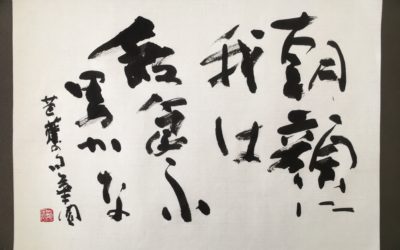 朝顔に
我は
飯食ふ
男かな
芭蕉の句